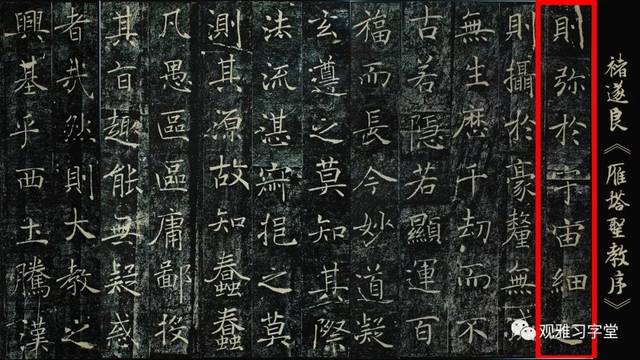 褚遂良《雁塔聖教序》
則弥於宇宙細
則攝於豪釐無
無生歷千劫而不
古若隱若顯運百
福而長今妙道凝
玄遵之莫知其際
法流湛寂挹之莫
測其源故知蠢蠢
凡愚區區庸鄙投
其旨趣能無疑惑
者哉然則大教之
興基乎西土騰漢
观雅习字堂